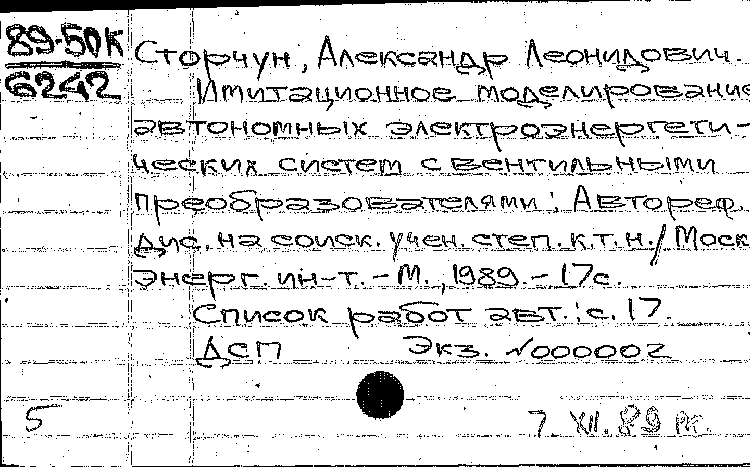 89-50К
6242
Сторчун, Александр Леонидович.
Имитационное моделирование
автономных электроэнергети-
ческих систем с вентильными
преобразователями: Автореф.
дис. на соиск. учен. степ. к.т.н./Моск
энерг. ин-т. - М., 1989. - 17с.
Список работ авт.: с. 17.
ДСП Экз. №000002
5 7. XII. 89